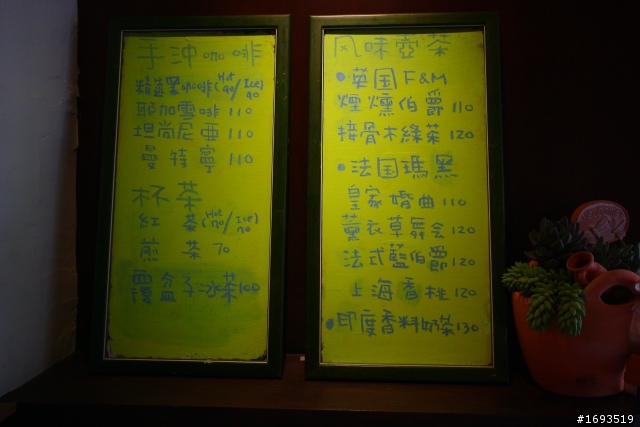 手沖咖啡
精選黑咖啡(Hot/Ice)
耶加雪啡 110
坦尚尼亞 110
曼特寧 110
杯茶
紅茶(Hot/Ice)
煎茶 70
覆盆子冰茶100
风味壺茶
•英国F&M
煙燻伯爵 110
接骨木綠茶 120
•法国瑪黑
皇家婚曲 110
薰衣草舞会 120
法式藍伯爵 120
上海香桃 120
•印度香料奶茶130
#1693519